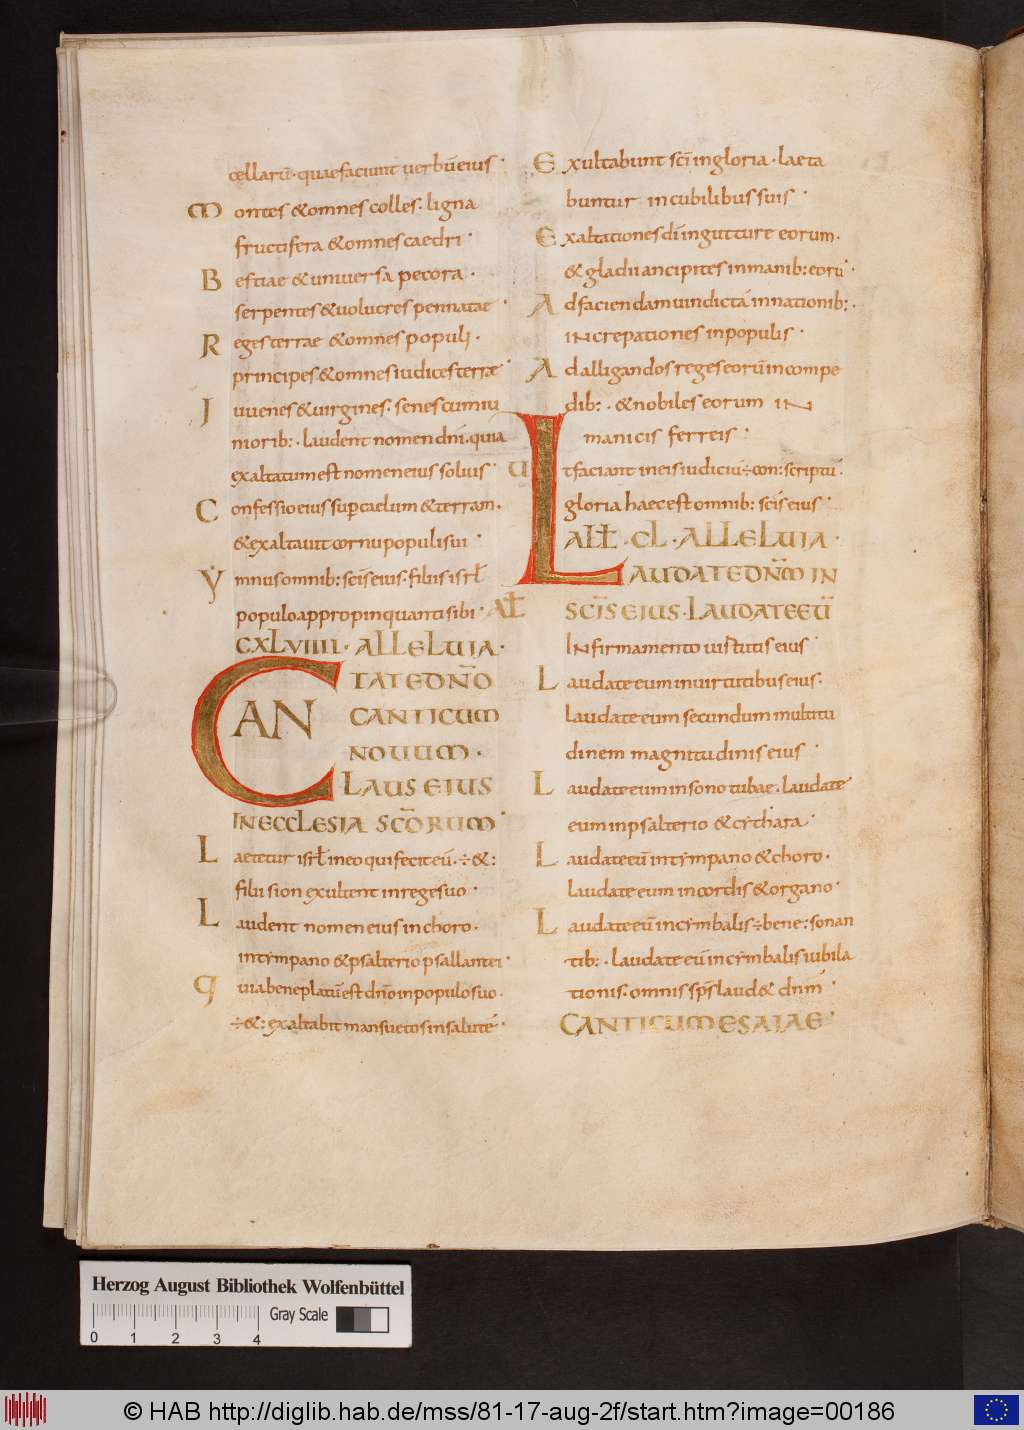 cellarū· quae faciunt uerbū eius·
Montes & omnes colles· ligna
fructifera & omnes caedri·
Bestiae & uniuersa pecora·
serpentes & uolucres pennatae·
Reges terrae & omnes populi·
principes & omnes iudices terrae·
Iuuenes & uirgines· senes cum iu
niorib:· laudent nomen dnī· quia
exaltatum est nomen eius solius·
Confessio eius sup caelum & terram·
& exaltauit cornu populi sui·
Ymnus omnib: scīs eius· filiis isrł
populo appropinquanti sibi· Ałł
CXLVIIII· ALLELUIA·
CANTATE DN̄O
CANTICUM
NOUUM·
LAUS EIUS
IN ECCLESIA SC̄ORUM·
Laetetur isrł in eo qui fecit eū·÷&:
filii sion exultent in rege suo·
Laudent nomen eius in choro·
in tympano & psalterio psallant ei·
Quia beneplacitū est dn̄o in populo suo·
÷&: exaltabit mansuetos in salutē·
Exultabunt scī in gloria· laeta
buntur in cubilibus suis·
Exaltationes dī in gutture eorum·
& gladii ancipites in manib: eorū·
Ad faciendam uindictā in nationib:·
increpationes in populis·
Ad alligandos reges eorū in compe
dib:· & nobiles eorum in
manicis ferreis·
Ut faciant in eis iudiciū÷con:scriptū·
gloria haec est omnib: scīs eius·
Ałł·CL·ALLELUIA·
LAUDATE DN̄M IN
SC̄IS EIUS· LAUDATE EŪ
IN firmamento uirtutis eius·
Laudate eum in uirtutibus eius·
laudate eum secundum multitu
dinem magnitudinis eius·
Laudate eum in sono tubae· laudate
eum in psalterio & cythara·
Laudate eū in tympano & choro·
laudate eum in cordis & organo·
Laudate eū in cymbalis÷bene:sonan
tib:· laudate eū in cymbalis iubila
tionis· omnis sp̄s laud& dnm̄·
CANTICUM ESAIAE·
Herzog August Bibliothek Wolfenbüttel
Gray Scale
0 1 2 3 4
© HAB http://diglib.hab.de/mss/81-17-aug-2f/start.htm?image=00186